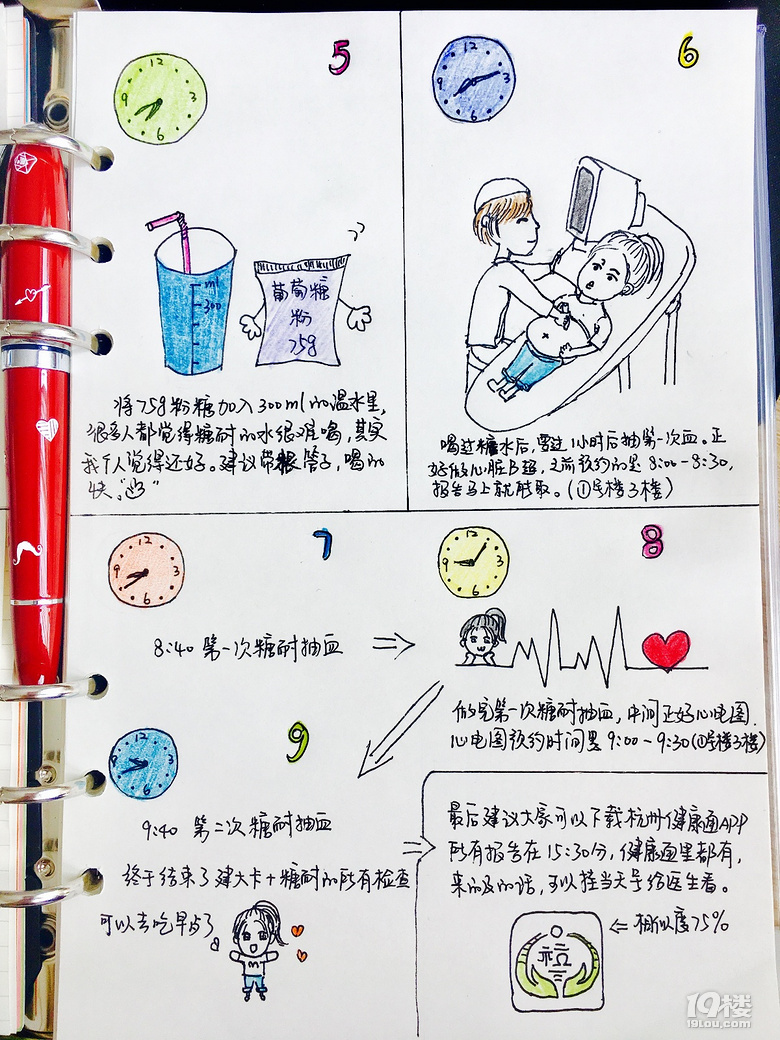 5
12
3
6
9
ml
300
葡萄糖
粉
75g
将75g粉糖加入300ml的温水里,
很多人都觉得糖耐的水很难喝,其实
我个人觉得还好。建议带根管子,喝的
快。
6
12
3
6
9
喝过糖水后,要过1小时后抽第一次血。正
好做心脏B超,之前预约的是8:00-8:30,
报告马上就能取。(①号楼3楼)
7
12
3
6
9
8:40 第一次糖耐抽血 ⇒
8
12
3
6
9
做完第一次糖耐抽血,中间正好心电图.
心电图预约时间是9:00-9:30(①号楼3楼)
9
12
3
6
9
9:40 第二次糖耐抽血
终于结束了建大卡+糖耐的所有检查
可以去吃早点了
⇒
最后建议大家可以下载杭州健康通APP
所有报告在15:30分,健康通里都有,
来的及的话,可以挂当天号给医生看。
⇐ 相似度75%
19楼
19lou.com